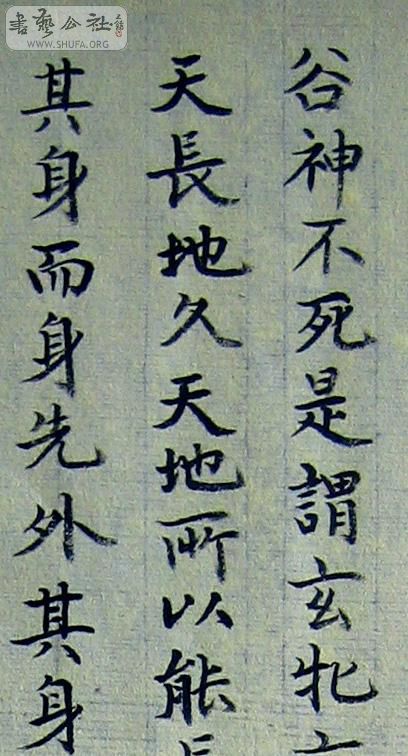 谷神不死是謂玄牝
天長地久天地所以能
其身而身先外其身
書藝公社
WWW.SHUFA.ORG